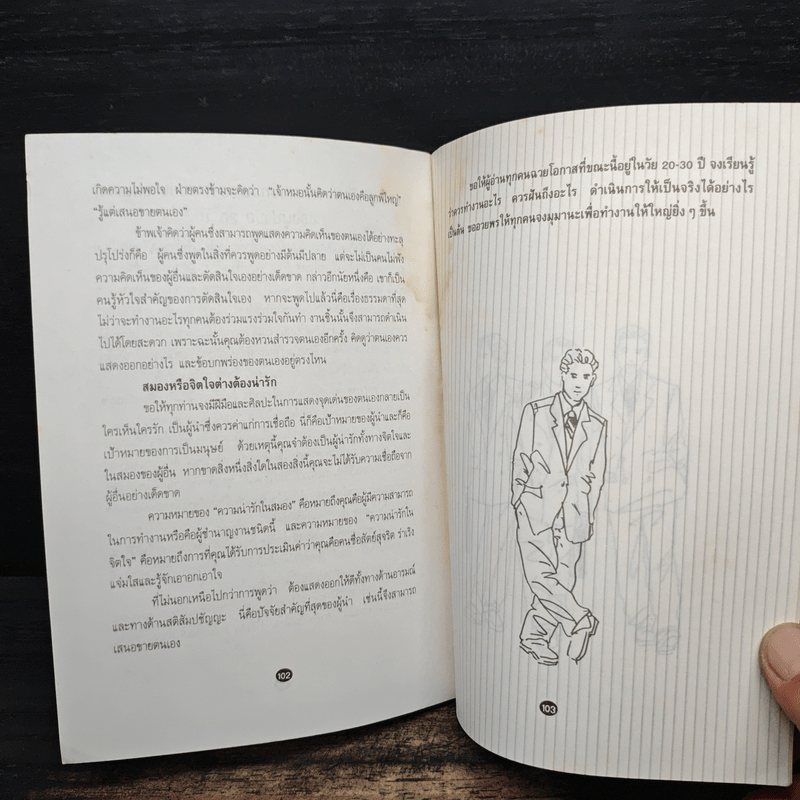 เกิดความไม่พอใจ ฝ่ายตรงข้ามจะคิดว่า "เจ้าหมอนั้นคิดว่าตนเองคือลูกพี่ใหญ่"
"รู้แต่เสนอขายตนเอง"
ข้าพเจ้าคิดว่าผู้คนซึ่งสามารถพูดแสดงความคิดเห็นของตนได้อย่างทะลุ
ปรุโปร่งก็คือ ผู้คนซึ่งพูดในสิ่งที่ควรพูดอย่างมีต้นมีปลาย แต่จะไม่เป็นคนไม่ฟัง
ความคิดเห็นของผู้อื่นและตัดสินใจเองอย่างเด็ดขาด กล่าวอีกนัยหนึ่งคือ เขาก็เป็น
คนรู้หัวใจสำคัญของการตัดสินใจเอง หากจะพูดไปแล้วนี่คือเรื่องธรรมดาที่สุด
ไม่ว่าจะทำงานอะไรทุกคนต้องร่วมแรงร่วมใจกันทำ งานชิ้นนั้นจึงสามารถดำเนิน
ไปได้โดยสะดวก เพราะฉะนั้นคุณต้องหวนสำรวจตนเองอีกครั้ง คิดดูว่าตนเองควร
แสดงออกอย่างไร และข้อบกพร่องของตนเองอยู่ตรงไหน
สมองหรือจิตใจต่างต้องน่ารัก
ขอให้ทุกท่านจงมีฝีมือและศิลปะในการแสดงจุดเด่นของตนเองกลายเป็น
ใครเห็นใครรัก เป็นผู้นำซึ่งควรค่าแก่การเชื่อถือ นี่ก็คือเป้าหมายของผู้นำและก็คือ
เป้าหมายของการเป็นมนุษย์ ด้วยเหตุนี้คุณจำต้องเป็นผู้น่ารักทั้งทางจิตใจและ
ในสมองของผู้อื่น หากขาดสิ่งหนึ่งสิ่งใดในสองสิ่งนี้คุณจะไม่ได้รับความเชื่อถือจาก
ผู้อื่นอย่างเด็ดขาด
ความหมายของ "ความน่ารักในสมอง" คือหมายถึงคุณคือผู้มีความสามารถ
ในการทำงานหรือคือผู้ชำนาญงานชนิดนี้ และความหมายของ "ความน่ารักใน
จิตใจ" คือหมายถึงการที่คุณได้รับการประเมินค่าว่าคุณคือคนซื่อสัตย์สุจริต ร่าเริง
แจ่มใสและรู้จักเอาอกเอาใจ
ที่ไม่นอกเหนือไปกว่าการพูดว่า ต้องแสดงออกให้ดีทั้งทางด้านอารมณ์
และทางด้านสติสัมปชัญญะ นี่คือปัจจัยสำคัญที่สุดของผู้นำ เช่นนี้จึงสามารถ
เสนอขายตนเอง
102
ขอให้ผู้อ่านทุกคนฉวยโอกาสที่ขณะนี้อยู่ในวัย 20-30 ปี จงเรียนรู้
ว่าควรทำงานอะไร ควรฝันถึงอะไร ดำเนินการให้เป็นจริงได้อย่างไร
เป็นต้น ขออวยพรให้ทุกคนจงมุมานะเพื่อทำงานให้ใหญ่ยิ่ง ๆ ขึ้น
103